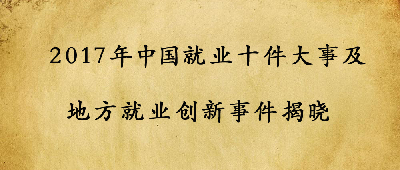 2017年中国就业十件大事及
地方就业创新事件揭晓